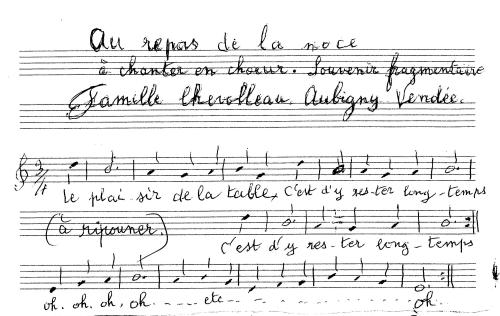 Au repas de la noce
à chanter en choeur. Souvenir fragmentaire
Famille Chevolleau. Aubigny Vendée.
3/4
Le plai-sir de la table, c'est d'y res-ter long-temps
(à ripouner.)
c'est d'y res-ter long-temps
oh. oh. oh, oh. - - - - etc - - - - - - - - oh.